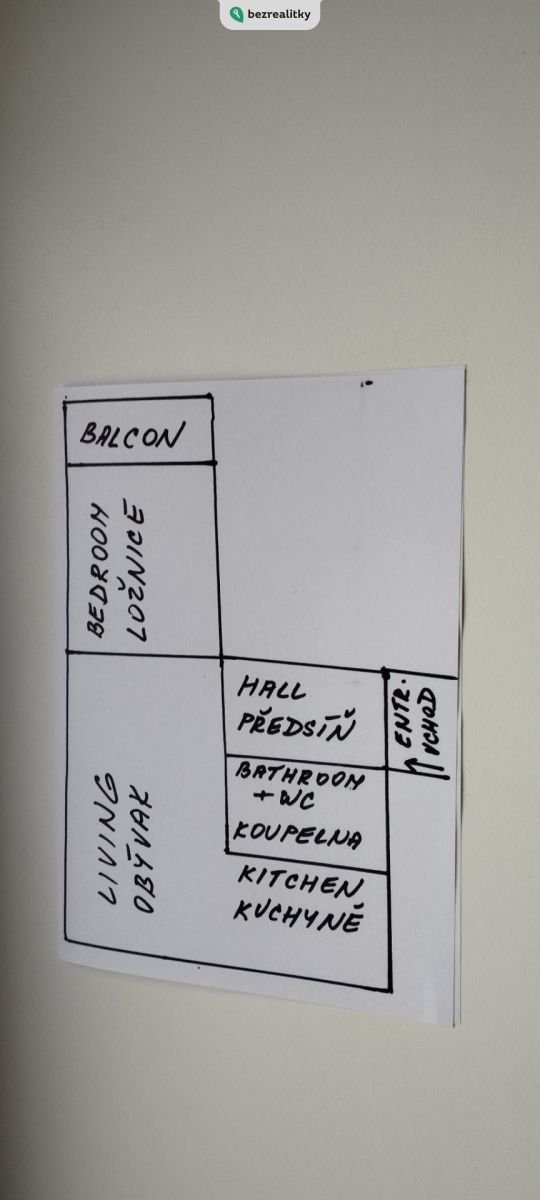 bezrealitky
BALCON
BEDROOM
LOŽNICE
HALL
PŘEDSÍŇ
ENTR.
VCHOD
BATHROOM
+ WC
KOUPELNA
LIVING
OBÝVAK
KITCHEN
KUCHYNĚ